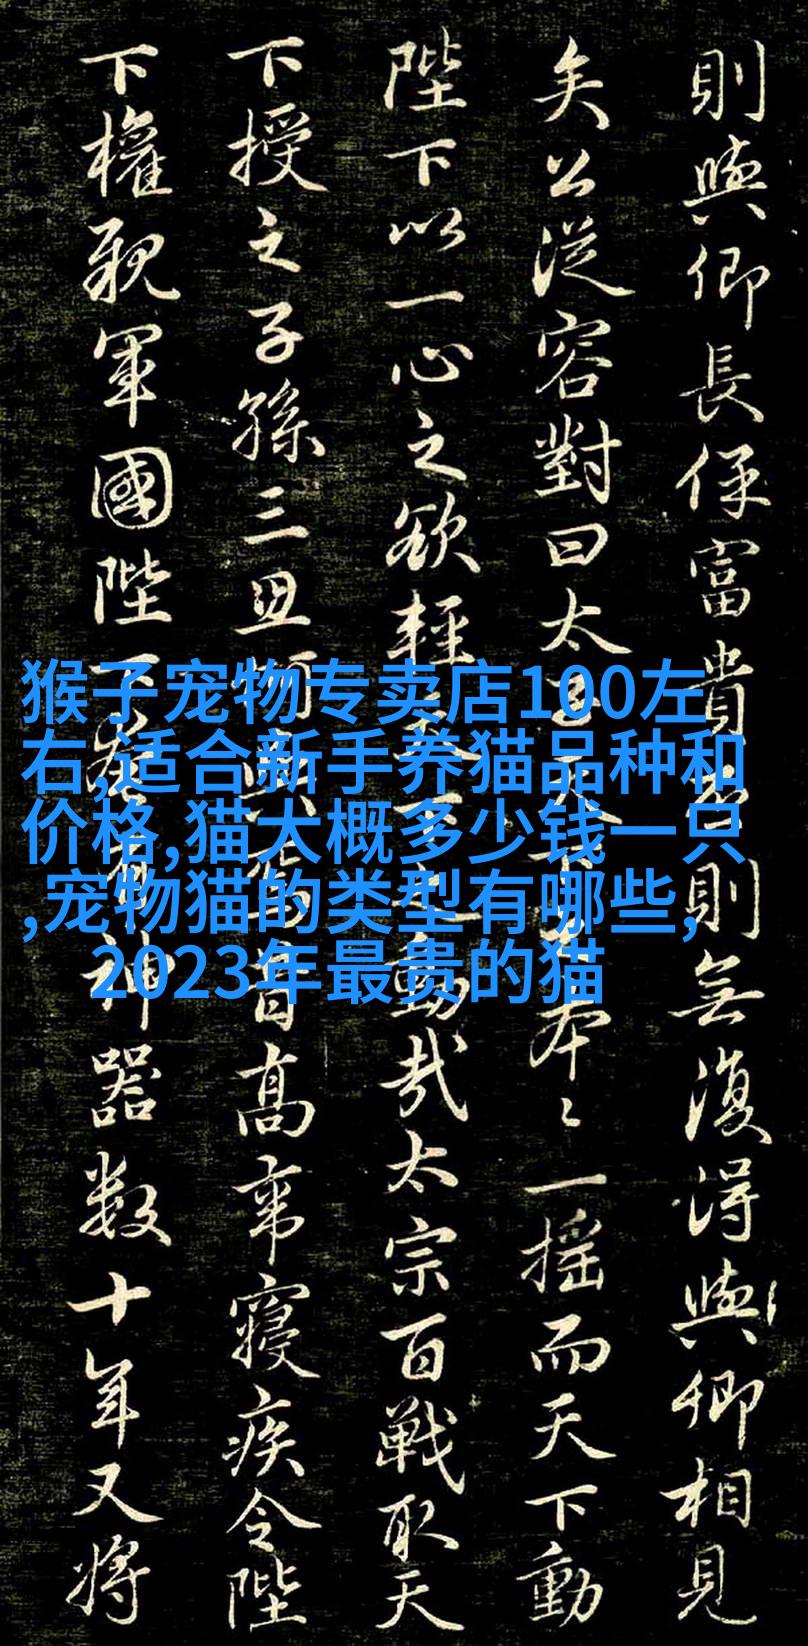 則與卿長保富貴則無復得與卿相見
矣公從容對曰太子本〻一摇而天下動
陛下以一心之欲輕動哉太宗百戰取天
下授之子孫三昔高帝寢疾令陛
下權親軍國陛下神器数十年又將
猴子宠物专卖店100左
右,适合新手养猫品种和
价格,猫大概多少钱一只
,宠物猫的类型有哪些,
2023年最贵的猫